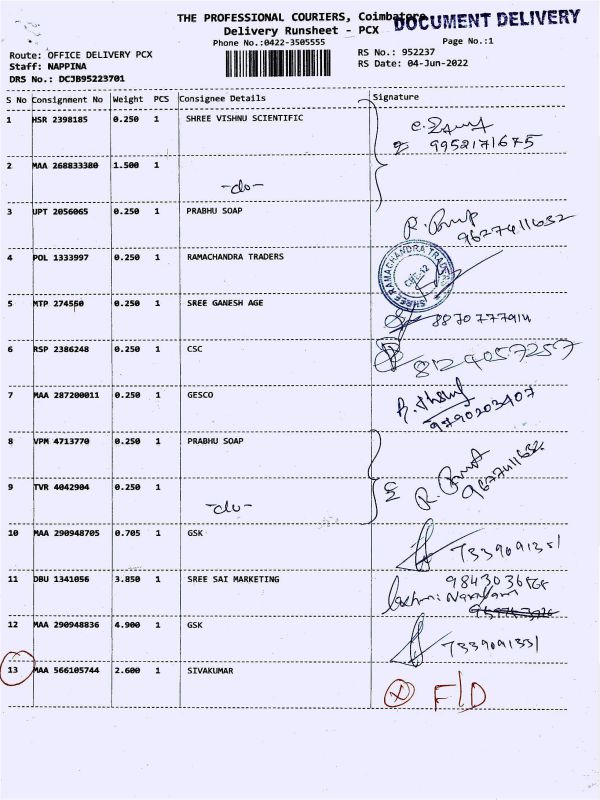 THE PROFESSIONAL COURIERS, Coimbatore
DOCUMENT DELIVERY
Delivery Runsheet - PCX
Phone No.:0422-3505555
Page No.:1
Route: OFFICE DELIVERY PCX
RS No.: 952237
Staff: NAPPINA
RS Date: 04-Jun-2022
DRS No.: DCJB95223701
S No Consignment No Weight PCS Consignee Details Signature
1 HSR 2398185 0.250 1 SHREE VISHNU SCIENTIFIC
9952171675
2 MAA 268833380 1.500 1
-do-
3 UPT 2056065 0.250 1 PRABHU SOAP
9627411632
4 POL 1333997 0.250 1 RAMACHANDRA TRADERS
SHREE RAMACHANDRA TRADERS
5 MTP 274550 0.250 1 SREE GANESH AGE
8870777914
6 RSP 2386248 0.250 1 CSC
8124057257
7 MAA 287200011 0.250 1 GESCO
9790203407
8 VPM 4713770 0.250 1 PRABHU SOAP
9 TVR 4042904 0.250 1
-do-
10 MAA 290948705 0.705 1 GSK
7339091331
11 DBU 1341056 3.850 1 SREE SAI MARKETING
12 MAA 290948836 4.900 1 GSK
7339091331
13 MAA 566105744 2.600 1 SIVAKUMAR
F/D